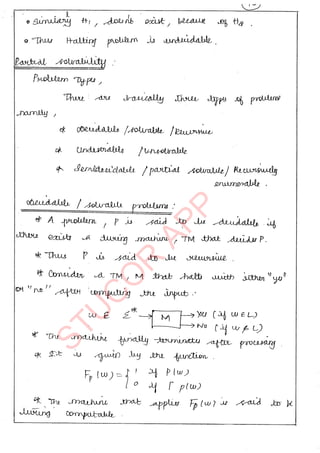 • Similarly H1, doesn't exist, because of H2.
• Thus Halting problem is undecidable.
Partial solvability :
Problem Types,
There are basically three types of problems
namely,
* Decidable / solvable / Recursive
* Undecidable / Unsolvable
* Semidecidable / partial solvable / Recursively
enumerable.
decidable / solvable problems :
* A problem, P is said to be decidable if
there exists a turing machine, TM that decides P.
* Thus P is said to be recursive.
* Consider a TM, M that halts with either "yes"
or "no" after computing the input.
w ∈ Σ* → M → Yes (if w ∈ L)
→ No (if w ∉ L)
* The machine finally terminates after processing
* It is given by the function.
Fp (w) = { 1 if p(w)
0 if Γ p(w)
* The machine that applies Fp(w) is said to be
turing computable.
STUCOR APP